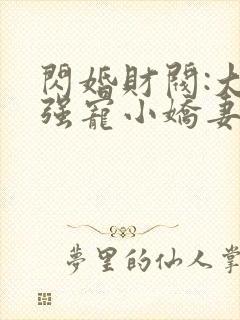 閃婚財閥:大
強寵小嬌妻
夢里的仙人掌